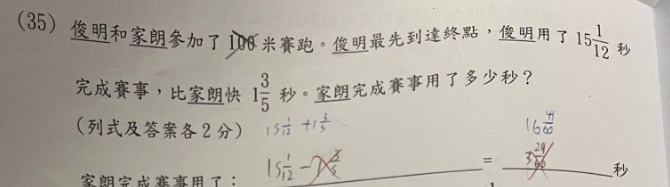 (35) 俊明和家朗參加了 100 米賽跑。俊明最先到達終點，俊明用了 15 1/12 秒
完成賽事，比家朗快 1 3/5 秒。家朗完成賽事用了多少秒？
(列式及答案各 2 分) 15 1/12 + 1 3/5 16 41/60
家朗完成賽事用了： 15 1/12 - = 秒